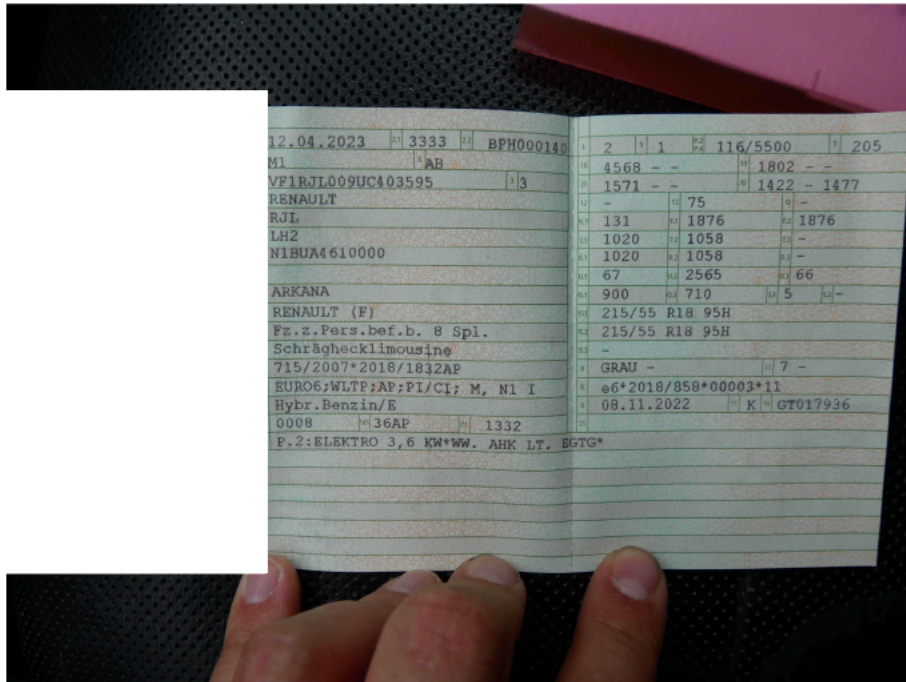 12.04.2023 2.1 3333 2.2 BPH000140
M1 4 AB
VF1RJL009UC403595 3 3
RENAULT
RJL
LH2
N1BUA4610000
ARKANA
RENAULT (F)
Fz.z.Pers.bef.b. 8 Spl.
Schräghecklimousine
715/2007*2018/1832AP
EURO6;WLTP;AP;PI/CI; M, N1 I
Hybr.Benzin/E
0008 36AP 1332
P.2:ELEKTRO 3,6 KW*WW. AHK LT. EGTG*
L 2 9 1 P.2 P.4 116/5500 T 205
18 4568 - - 19 1802 - -
20 1571 - - G 1422 - 1477
12 - 13 75 Q -
V.7 131 F.1 1876 F.2 1876
7.1 1020 7.2 1058 7.3 -
8.1 1020 8.2 1058 8.3 -
U.1 67 U.2 2565 U.3 66
O.1 900 O.2 710 S.1 5 S.2 -
15.1 215/55 R18 95H
15.2 215/55 R18 95H
15.3 -
R GRAU - 11 7 -
K e6*2018/858*00003*11
6 08.11.2022 17 K 16 GT017936
21